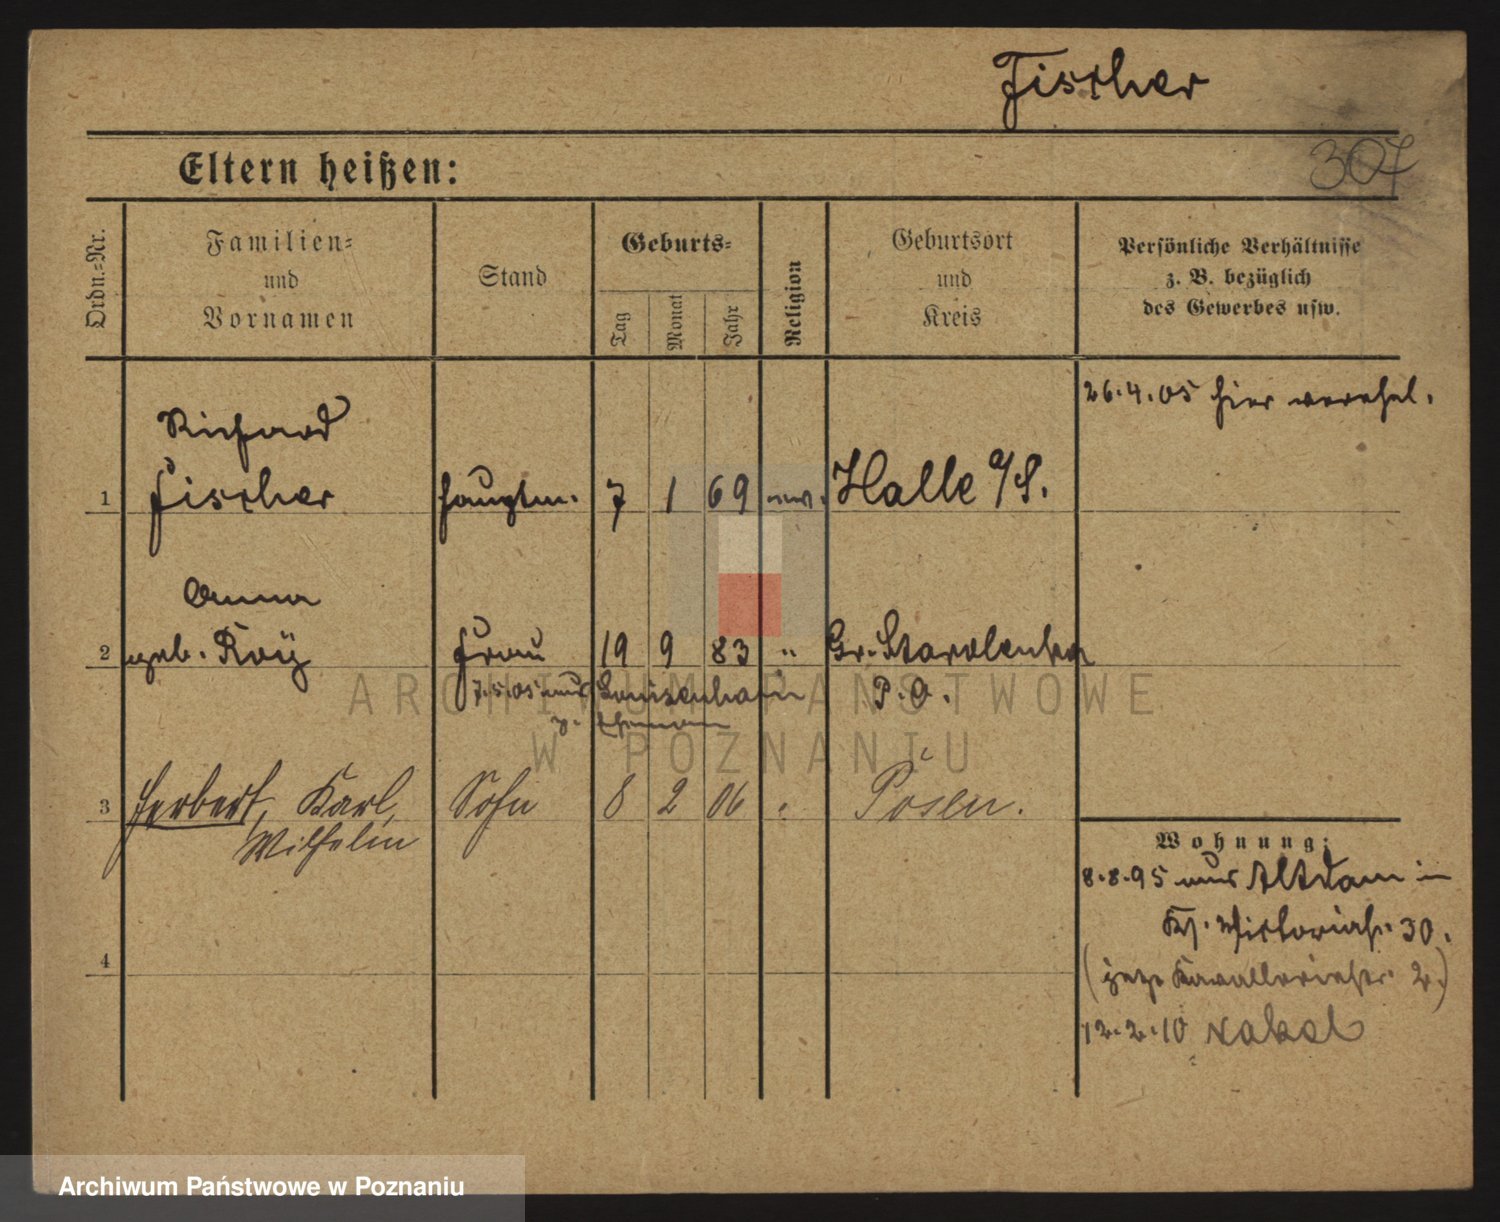 Fischer
307
Eltern heißen:
Ordn.=Nr.
Familien=
und
Vornamen
Stand
Geburts=
Tag
Monat
Jahr
Religion
Geburtsort
und
Kreis
Persönliche Verhältnisse
z. B. bezüglich
des Gewerbes usw.
26.4.05 hier verehel.
Richard
1 Fischer Hauptm. 7 1 69 ev. Halle a/S.
Anna
2 geb. Roÿ Frau 19 9 83 " Gr. Starolenka
7.5.05 aus Louisenhain P.O.
z. Ehemann
3 Herbert, Karl, Sohn 8 2 06 " Posen.
Wilhelm
Wohnung:
8.8.95 aus Altdam in
Viktoriastr. 30.
(jetzt Kavalleriestr. 2.)
4
12.2.10 Nakel
ARCHIWUM PAŃSTWOWE
W POZNANIU
Archiwum Państwowe w Poznaniu